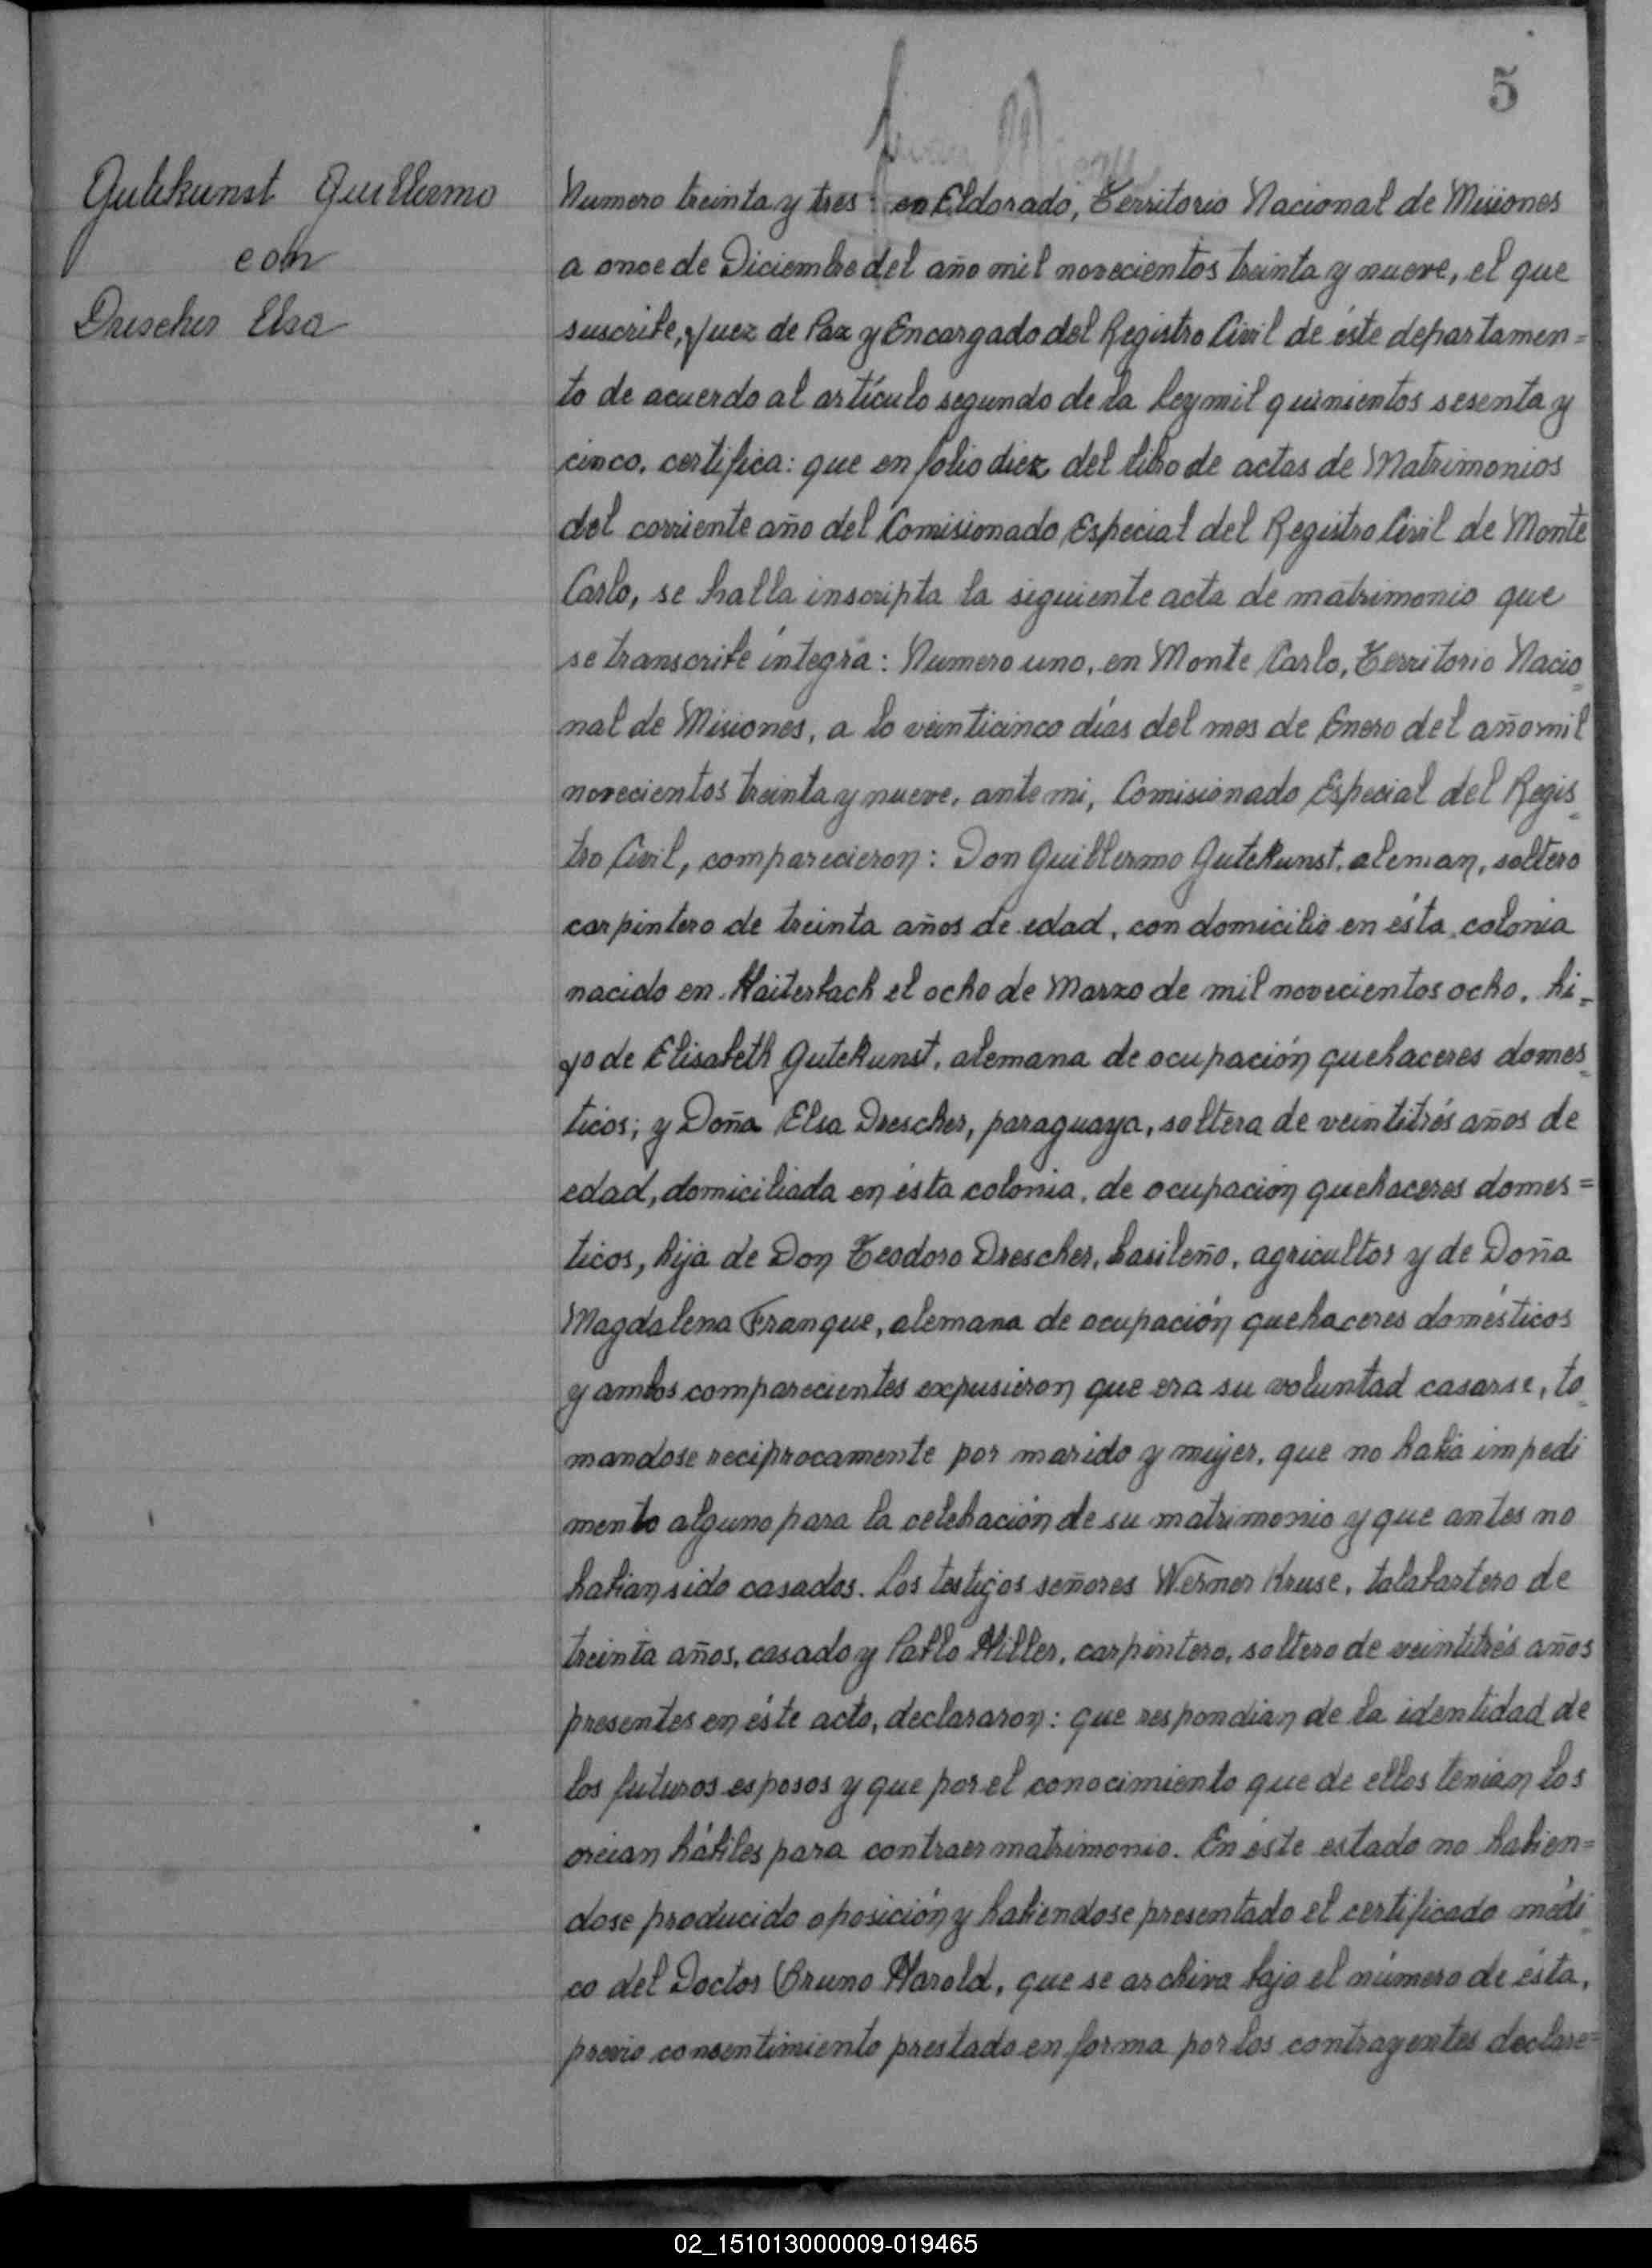 5
Gutekunst Guillermo
con
Drescher Elsa
Numero treinta y tres: en Eldorado, Territorio Nacional de Misiones
a once de Diciembre del año mil novecientos treinta y nueve, el que
suscribe, Juez de Paz y Encargado del Registro Civil de éste departamen=
to de acuerdo al artículo segundo de la ley mil quinientos sesenta y
cinco, certifica: que en folio diez del libro de actas de Matrimonios
del corriente año del Comisionado Especial del Registro Civil de Monte
Carlo, se halla inscripta la siguiente acta de matrimonio que
se transcribe íntegra: Numero uno, en Monte Carlo, Territorio Nacio=
nal de Misiones, a lo veinticinco días del mes de Enero del año mil
novecientos treinta y nueve, ante mi, Comisionado Especial del Regis=
tro Civil, comparecieron: Don Guillermo Gutekunst, aleman, soltero
carpintero de treinta años de edad, con domicilio en ésta colonia
nacido en Haiterbach el ocho de Marzo de mil novecientos ocho, hi=
jo de Elisabeth Gutekunst, alemana de ocupación quehaceres domes=
ticos; y Doña Elsa Drescher, paraguaya, soltera de veintitrés años de
edad, domiciliada en ésta colonia, de ocupación quehaceres domes=
ticos, hija de Don Teodoro Drescher, brasileño, agricultor y de Doña
Magdalena Franque, alemana de ocupación quehaceres domésticos
y ambos comparecientes expusieron que era su voluntad casarse, to=
mandose reciprocamente por marido y mujer, que no habia impedi
mento alguno para la celebración de su matrimonio y que antes no
habian sido casados. Los testigos señores Werner Kruse, talabartero de
treinta años, casado y Pablo Hiller, carpintero, soltero de veintitrés años
presentes en éste acto, declararon: que respondian de la identidad de
los futuros esposos y que por el conocimiento que de ellos tenian los
creian hábiles para contraer matrimonio. En éste estado no habien=
dose producido oposición y habiendose presentado el certificado médi=
co del Doctor Bruno Harold, que se archiva bajo el número de ésta,
previo consentimiento prestado en forma por los contrayentes declare=
02_151013000009-019465